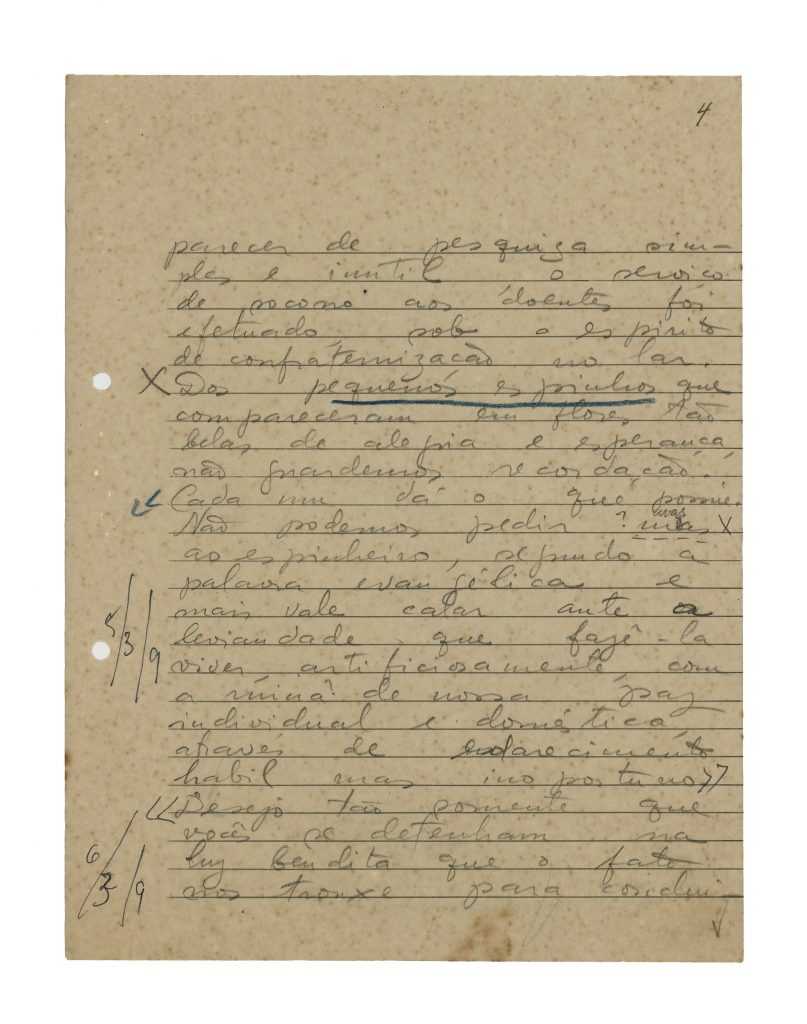 4
parecer de pesquiza sim-
ples e inútil o serviço
de socorro aos doentes foi
efetuado, sob o espirito
de confraternização no lar.
X Dos pequenos espinhos que
compareceram em flores tão
belas de alegria e esperança,
não guardemos recordação.
Cada um dá o que possue.
Não podemos pedir ? uvas X
ao espinheiro, segundo a
palavra evangélica e
mais vale calar ante a
leviandade que fazê-la
viver artificiosamente, com
a ruina de nossa paz
individual e doméstica,
através de esclarecimento
habil mas inoportuno>>
<<Desejo tão somente que
vocês se detenham na
luz bendita que o fato
nos trouxe para condui-
5/3/9
6/3/9